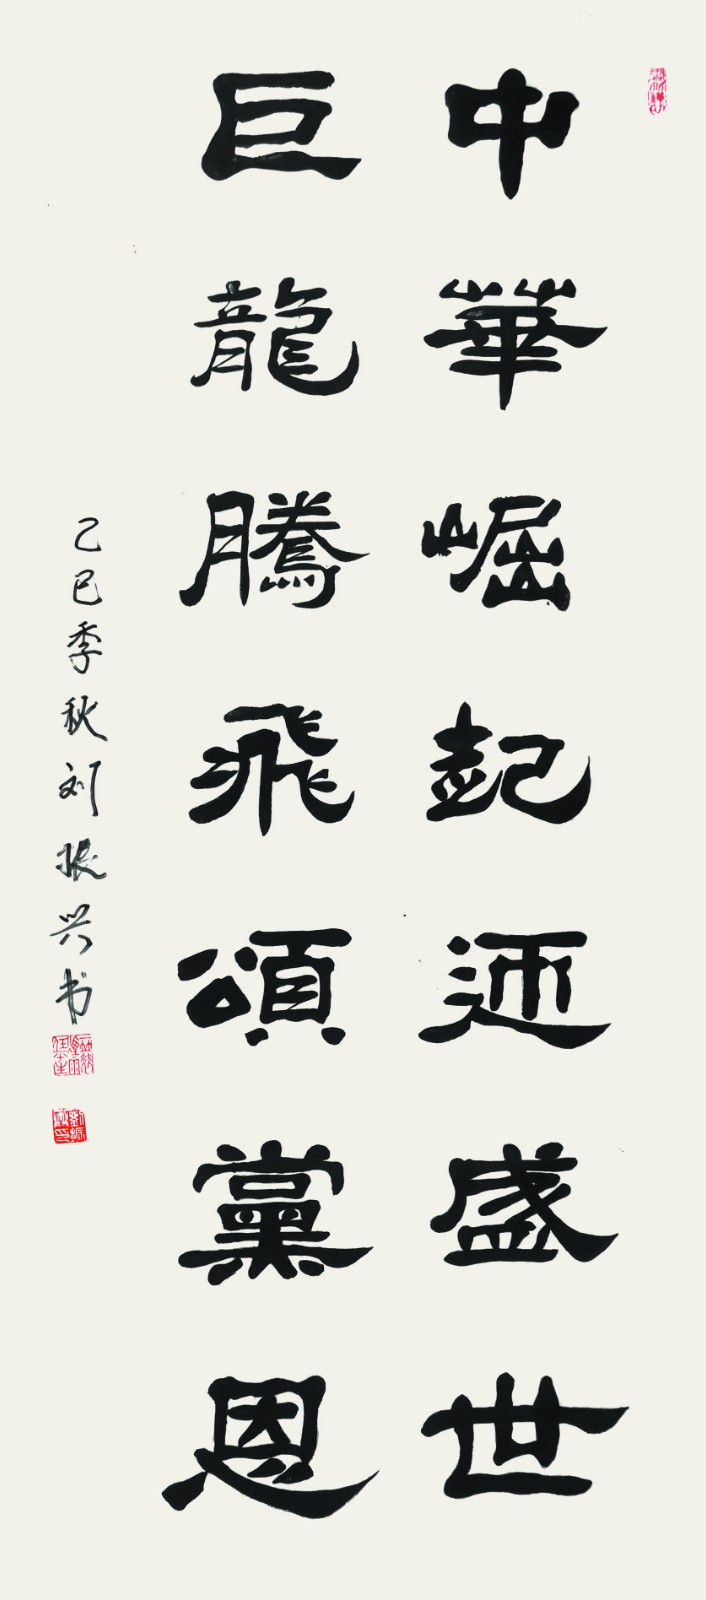 中華崛起迎盛世
巨龍騰飛頌黨恩
乙巳季秋刘振兴书